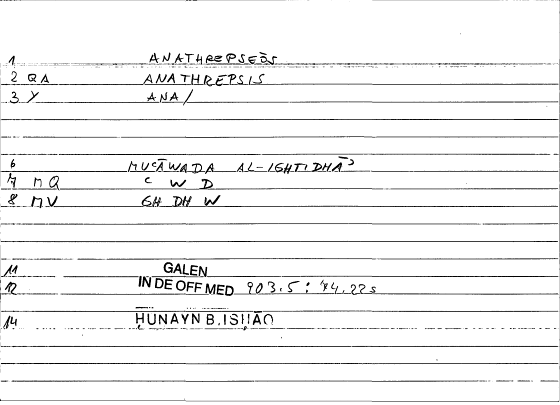 1 ANATHREPSEŌS
2 QA ANATHREPSIS
3 Y ANA/
6 MUᶜĀWADA AL-IGHTIDHĀʾ
7 MQ ᶜ W D
8 MV GH DH W
11 GALEN
12 IN DE OFF MED 903.5 : 44.22s
14 ḤUNAYN B. ISḤĀQ